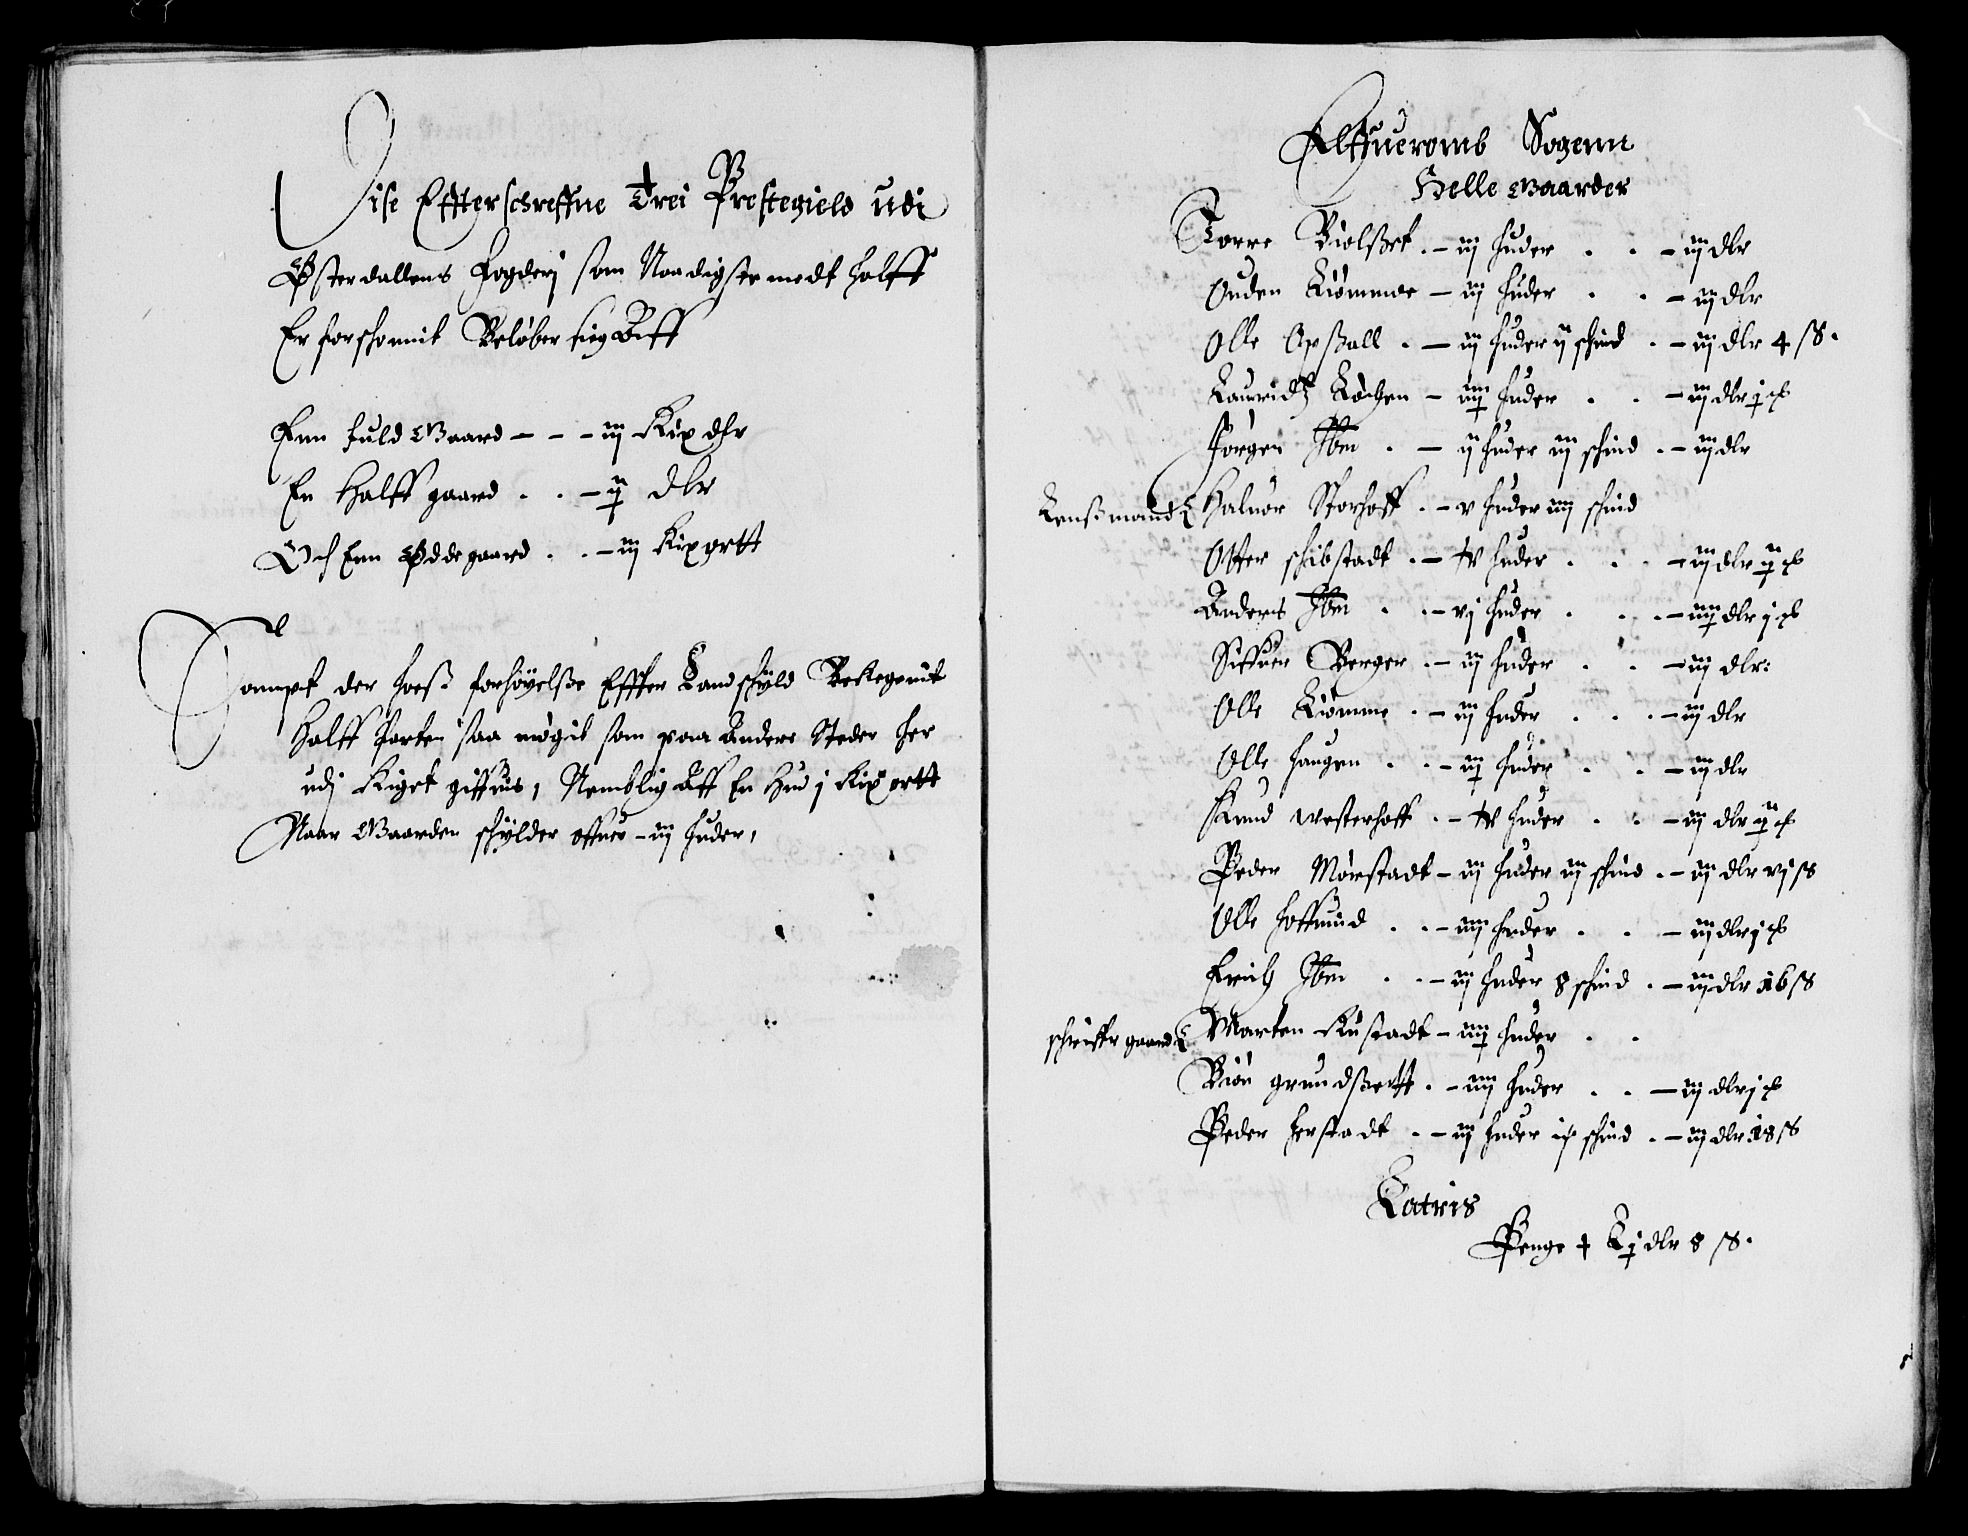 Disse Effterschreffne Trei Prestegield udi
Østerdallens Fogderj som Naadigste medt halff
Er forschonnit Beløber sieg Aff
Enn fuld Gaard - - - iij Rix dlr
En Halff gaard . . - ij dlr
Och Enn Øddegaard . . - iij Rix ortt
Sampt der hoeß forhøyelße Effter Landschyld Beregenit
Halff Parten saa møgit som paa Andere Steder her
udj Riget giffues, Nemblig Aff En Hud j Rix ortt
Naar Gaarden schylder offuer - iij huder,
Elffueromb Sogenn
Helle Gaarder
Torre Biolßet . - iij huder . . - iij dlr
Ouden Kiømme - iij huder . . - iij dlr
Olle Opßall . - iij huder ij schind . - iij dlr 4 ß.
Lauridtz Løchen - iiij huder . . - iij dlr j
Jørgen Ibm . - ij huder iij schind . - iij dlr
Lenßmand Haluor Storhoff . - v huder iiij schind
Otter schibstadt . - huder . . - iij dlr ij
Anders Ibm . . - vj huder . . - iiij dlr j
Siffuer Berger . - iij huder . . - iij dlr:
Olle Kiømme . - iij huder . . - iij dlr
Olle Haugen . . - iij huder . . - iij dlr
Knud Westerhoff . - huder . . - iij dlr ij
Peder Mørstadt - iij huder iij schind . - iij dlr vj ß
Olle hoffuind . . - iiij huder . . - iij dlr j
Erich Ibm . . - iij huder 8 schind . - iij dlr 16 ß
schriffr gaard Marten Rustadt - iiij huder . .
Biøn grundßett . - iiij huder . . - iij dlr j
Peder herstadt . - iij huder schind . - iij dlr 18 ß
Lateris
Penge dlr 8 ß.